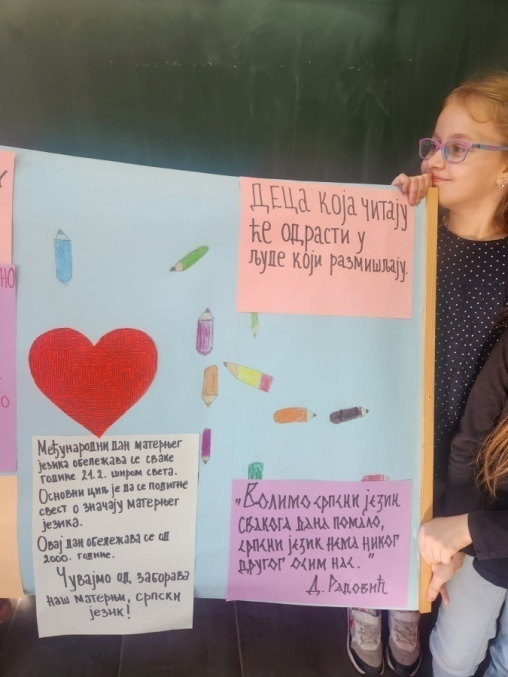 ДЕЦА КОЈА ЧИТАЈУ
ЋЕ ОДРАСТИ У
ЉУДЕ КОЈИ РАЗМИШЉАЈУ.
МЕЂУНАРОДНИ ДАН МАТЕРЊЕГ
ЈЕЗИКА ОБЕЛЕЖАВА СЕ СВАКЕ
ГОДИНЕ 21.2. ШИРОМ СВЕТА.
ОСНОВНИ ЦИЉ ЈЕ ДА СЕ ПОДИГНЕ
СВЕСТ О ЗНАЧАЈУ МАТЕРЊЕГ
ЈЕЗИКА.
ОВАЈ ДАН ОБЕЛЕЖАВА СЕ ОД
2000. ГОДИНЕ.
ЧУВАЈМО ОД ЗАБОРАВА
НАШ МАТЕРЊИ, СРПСКИ
ЈЕЗИК!
„ВОЛИМО СРПСКИ ЈЕЗИК
СВАКОГА ДАНА ПОМАЛО,
СРПСКИ ЈЕЗИК НЕМА НИКОГ
ДРУГОГ ОСИМ НАС."
Д. РАДОВИЋ